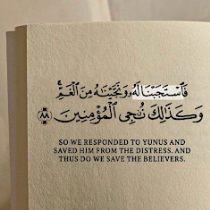 فَٱسْتَجَبْنَا لَهُۥ وَنَجَّيْنَٰهُ مِنَ ٱلْغَمِّ ۚ
وَكَذَٰلِكَ نُۨجِى ٱلْمُؤْمِنِينَ ٨٨
SO WE RESPONDED TO YUNUS AND
SAVED HIM FROM THE DISTRESS. AND
THUS DO WE SAVE THE BELIEVERS.